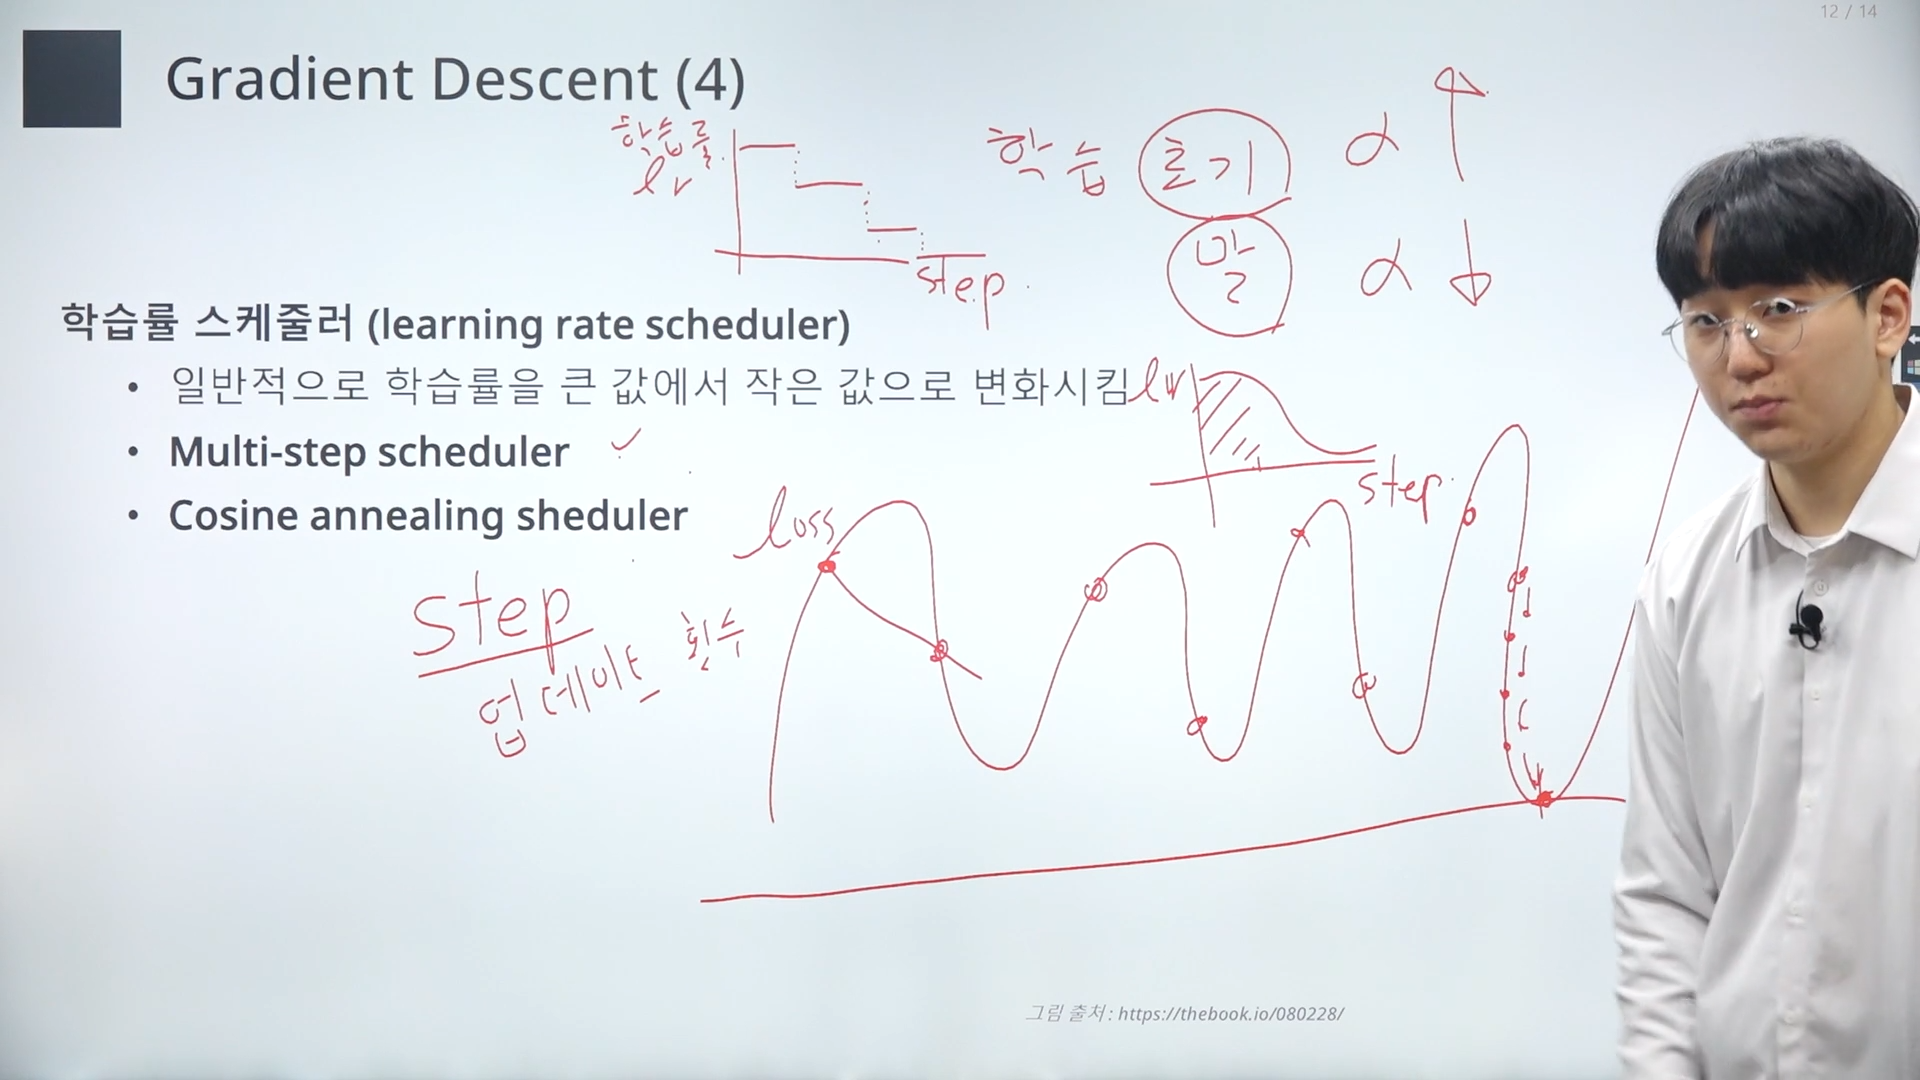 12 / 14
Gradient Descent (4)
학습률
lr
step
학습 초기 α
말 α
학습률 스케줄러 (learning rate scheduler)
• 일반적으로 학습률을 큰 값에서 작은 값으로 변화시킴
lr
• Multi-step scheduler
step
• Cosine annealing sheduler
loss
step
업데이트 횟수
그림 출처: https://thebook.io/080228/